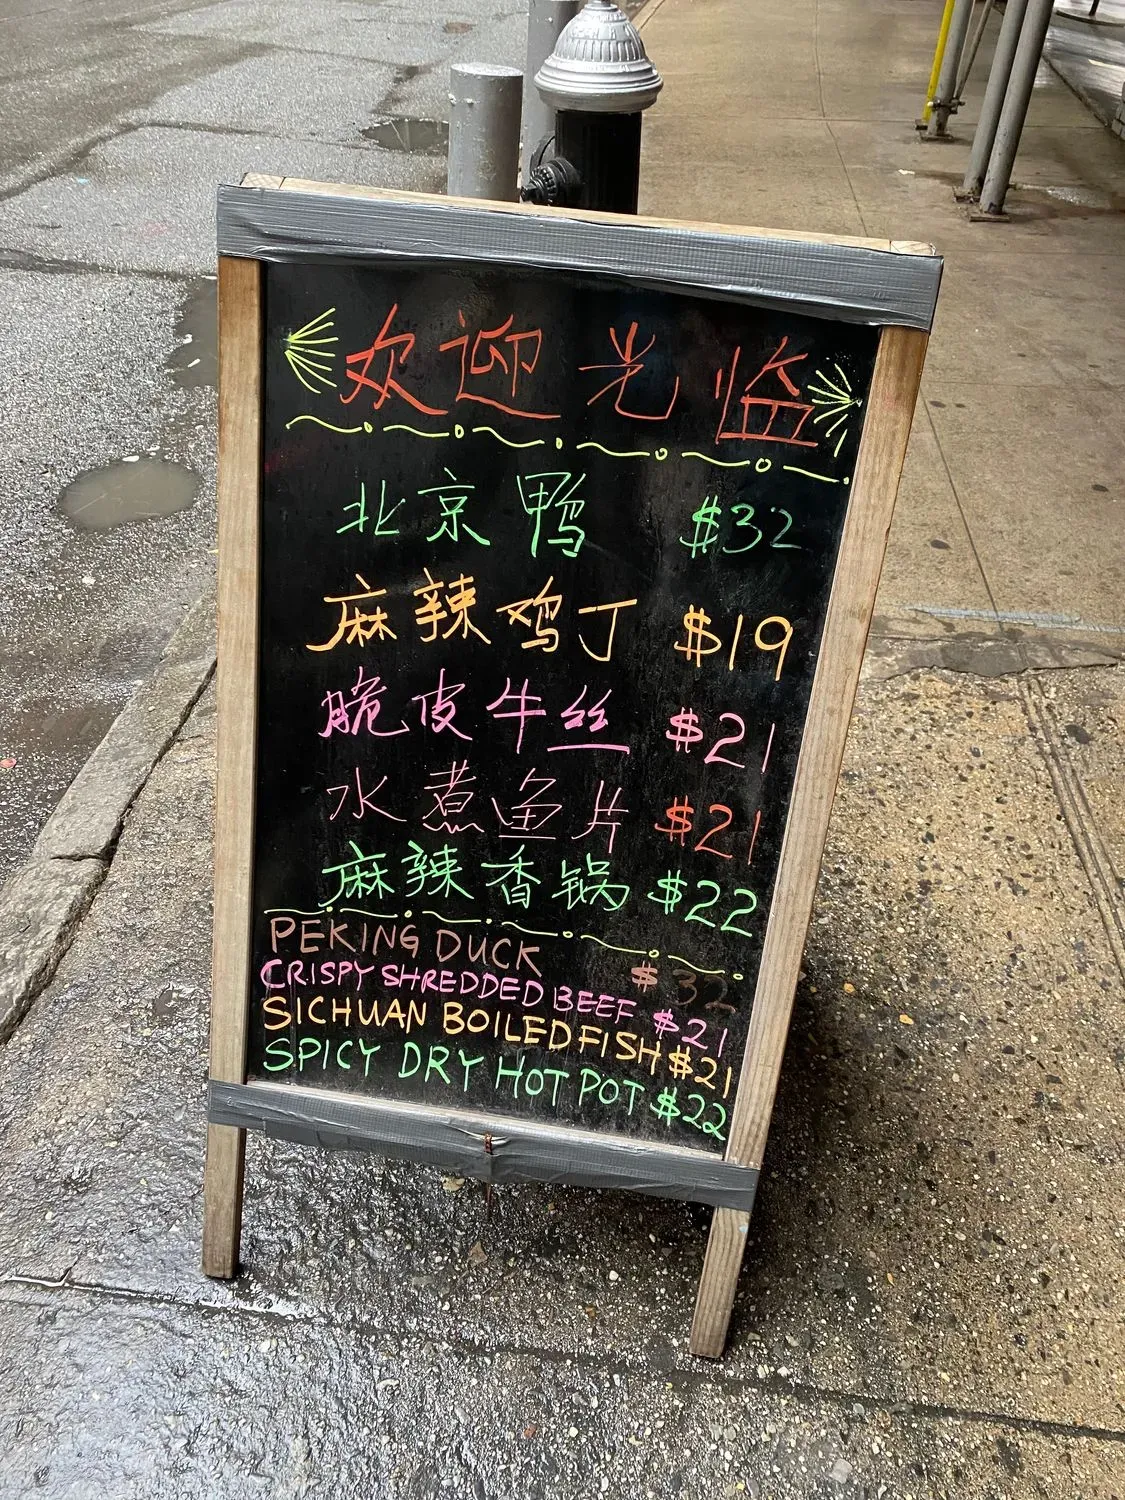 欢迎光临
北京鸭 $32
麻辣鸡丁 $19
脆皮牛丝 $21
水煮鱼片 $21
麻辣香锅 $22
PEKING DUCK $32
CRISPY SHREDDED BEEF $21
SICHUAN BOILED FISH $21
SPICY DRY HOT POT $22